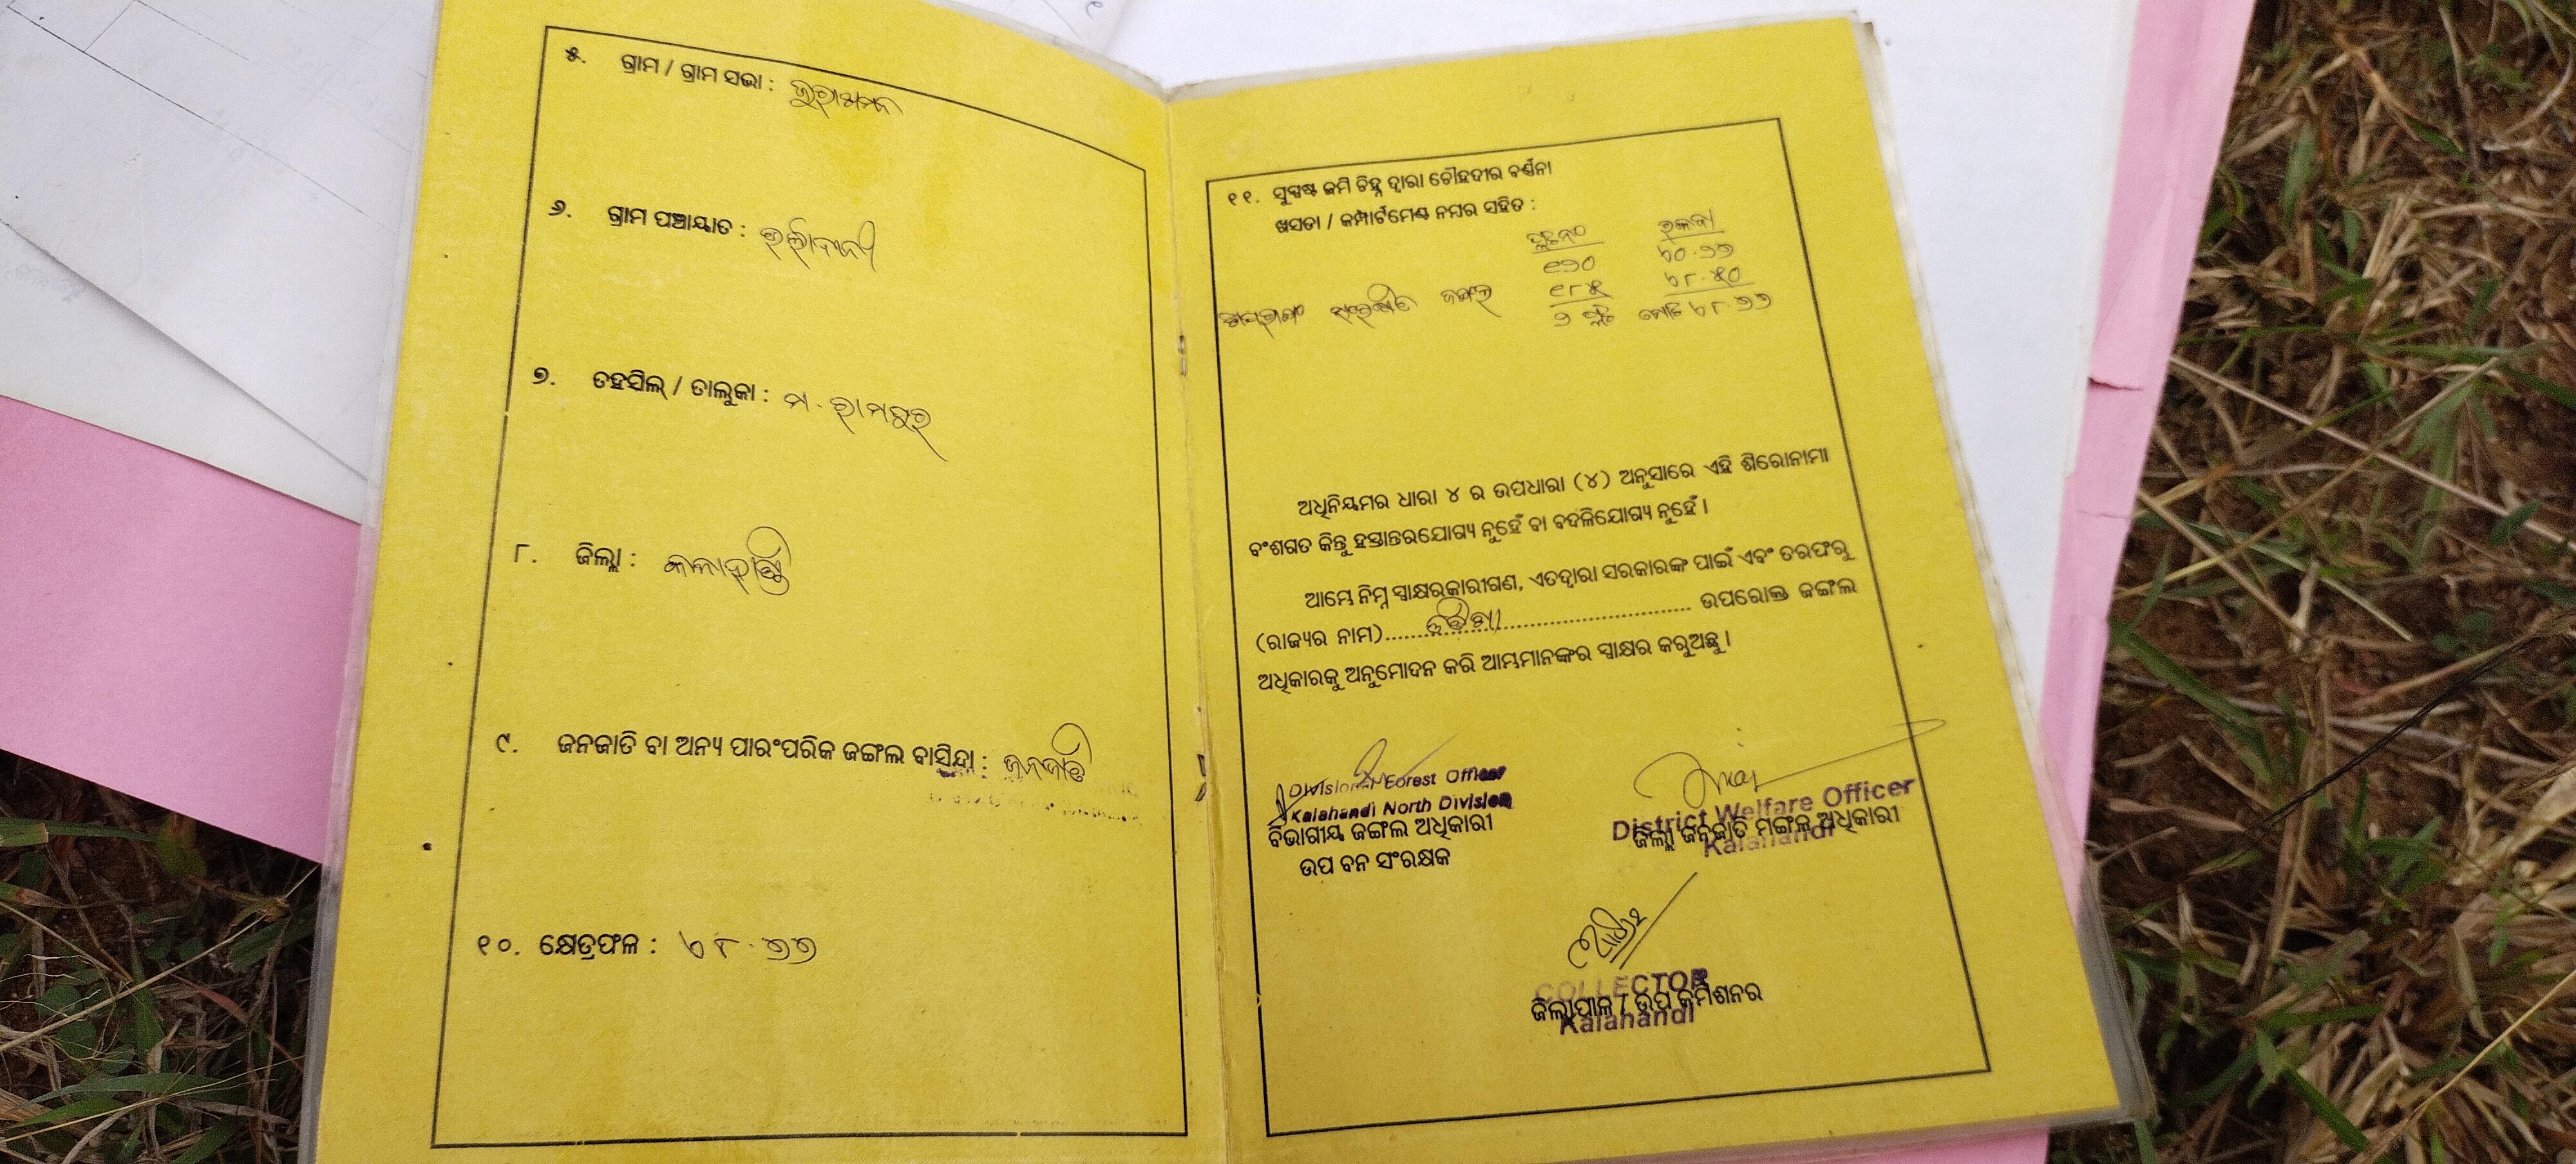 ୫. ଗ୍ରାମ / ଗ୍ରାମ ସଭା :
୬. ଗ୍ରାମ ପଞ୍ଚାୟାତ :
୭. ତହସିଲ୍ / ତାଲୁକା : ମ. ରାମପୁର
୮. ଜିଲ୍ଲା : କଳାହାଣ୍ଡି
୯. ଜନଜାତି ବା ଅନ୍ୟ ପାରଂପରିକ ଜଙ୍ଗଲ ବାସିନ୍ଦା : ଜନଜାତି
୧୦. କ୍ଷେତ୍ରଫଳ : ୭୮.୬୬
୧୧. ସୁସ୍ପଷ୍ଟ ଜମି ଚିହ୍ନ ଦ୍ୱାରା ଚୌହଦୀର ବର୍ଣନା
ଖସଡା / କମ୍ପାର୍ଟମେଣ୍ଟ ନମ୍ବର ସହିତ :
ରକବା
ସଂରକ୍ଷିତ ଜଙ୍ଗଲ
ଅଧିନିୟମର ଧାରା ୪ ର ଉପଧାରା (୪) ଅନୁସାରେ ଏହି ଶିରୋନାମା
ବଂଶଗତ କିନ୍ତୁ ହସ୍ତାନ୍ତରଯୋଗ୍ୟ ନୁହେଁ ବା ବଦଳିଯୋଗ୍ୟ ନୁହେଁ ।
ଆମ୍ଭେ ନିମ୍ନ ସ୍ୱାକ୍ଷରକାରୀଗଣ, ଏତଦ୍ୱାରା ସରକାରଙ୍କ ପାଇଁ ଏବଂ ତରଫରୁ
(ରାଜ୍ୟର ନାମ) ଓଡିଶା ଉପରୋକ୍ତ ଜଙ୍ଗଲ
ଅଧିକାରକୁ ଅନୁମୋଦନ କରି ଆମ୍ଭମାନଙ୍କର ସ୍ୱାକ୍ଷର କରୁଅଛୁ ।
Divisional Forest Officer
Kalahandi North Division
ବିଭାଗୀୟ ଜଙ୍ଗଲ ଅଧିକାରୀ
ଉପ ବନ ସଂରକ୍ଷକ
District Welfare Officer
ଜିଲ୍ଲା ଜନଜାତି ମଙ୍ଗଳ ଅଧିକାରୀ
Kalahandi
COLLECTOR
ଜିଲ୍ଲାପାଳ / ଉପ କମିଶନର
Kalahandi